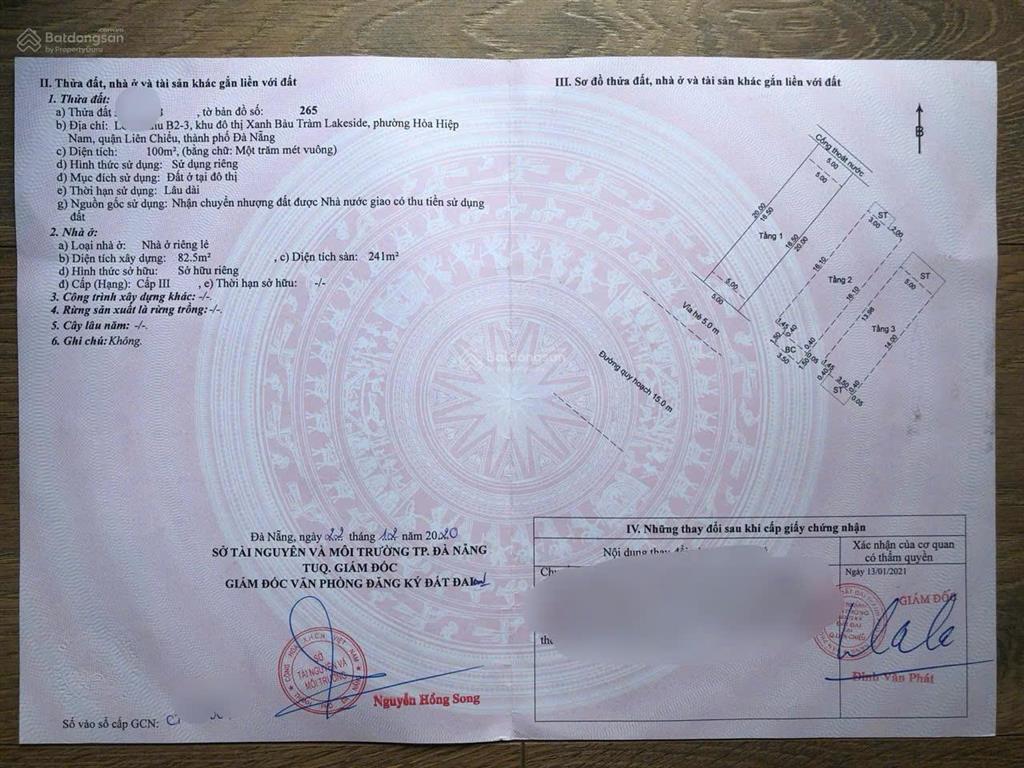 Batdongsan
by PropertyGuru
II. Thửa đất, nhà ở và tài sản khác gắn liền với đất
1. Thửa đất:
a) Thửa đất , tờ bản đồ số: 265
b) Địa chỉ: B2-3, khu đô thị Xanh Bàu Tràm Lakeside, phường Hòa Hiệp
Nam, quận Liên Chiểu, thành phố Đà Nẵng
c) Diện tích: 100m², (bằng chữ: Một trăm mét vuông)
d) Hình thức sử dụng: Sử dụng riêng
đ) Mục đích sử dụng: Đất ở tại đô thị
e) Thời hạn sử dụng: Lâu dài
g) Nguồn gốc sử dụng: Nhận chuyển nhượng đất được Nhà nước giao có thu tiền sử dụng
đất
2. Nhà ở:
a) Loại nhà ở: Nhà ở riêng lẻ
b) Diện tích xây dựng: 82.5m² , c) Diện tích sàn: 241m²
d) Hình thức sở hữu: Sở hữu riêng
đ) Cấp (Hạng): Cấp III , e) Thời hạn sở hữu: -/-
3. Công trình xây dựng khác: -/-.
4. Rừng sản xuất là rừng trồng: -/-.
5. Cây lâu năm: -/-.
6. Ghi chú: Không.
Đà Nẵng, ngày 22 tháng 12 năm 2020
SỞ TÀI NGUYÊN VÀ MÔI TRƯỜNG TP. ĐÀ NẴNG
TUQ. GIÁM ĐỐC
GIÁM ĐỐC VĂN PHÒNG ĐĂNG KÝ ĐẤT ĐAI
SỞ
TÀI NGUYÊN VÀ
MÔI TRƯỜNG
Nguyễn Hồng Song
Số vào sổ cấp GCN:
III. Sơ đồ thửa đất, nhà ở và tài sản khác gắn liền với đất
B
Cống thoát nước
5.00
5.00
20.00
16.50
Tầng 1
16.50
20.00
5.00
5.00
ST
3.00
2.00
16.10
Tầng 2
16.10
3.45
0.40
1.50
BC
3.50
0.40
0.05
1.50
ST
5.00
13.98
Tầng 3
14.00
1.45
0.40
3.50
0.40
0.05
ST
Vỉa hè 5.0 m
Đường quy hoạch 15.0 m
Batdongsan
IV. Những thay đổi sau khi cấp giấy chứng nhận
Nội dung thay đổi
Xác nhận của cơ quan
có thẩm quyền
Ngày 13/01/2021
GIÁM ĐỐC
Đinh Văn Phát